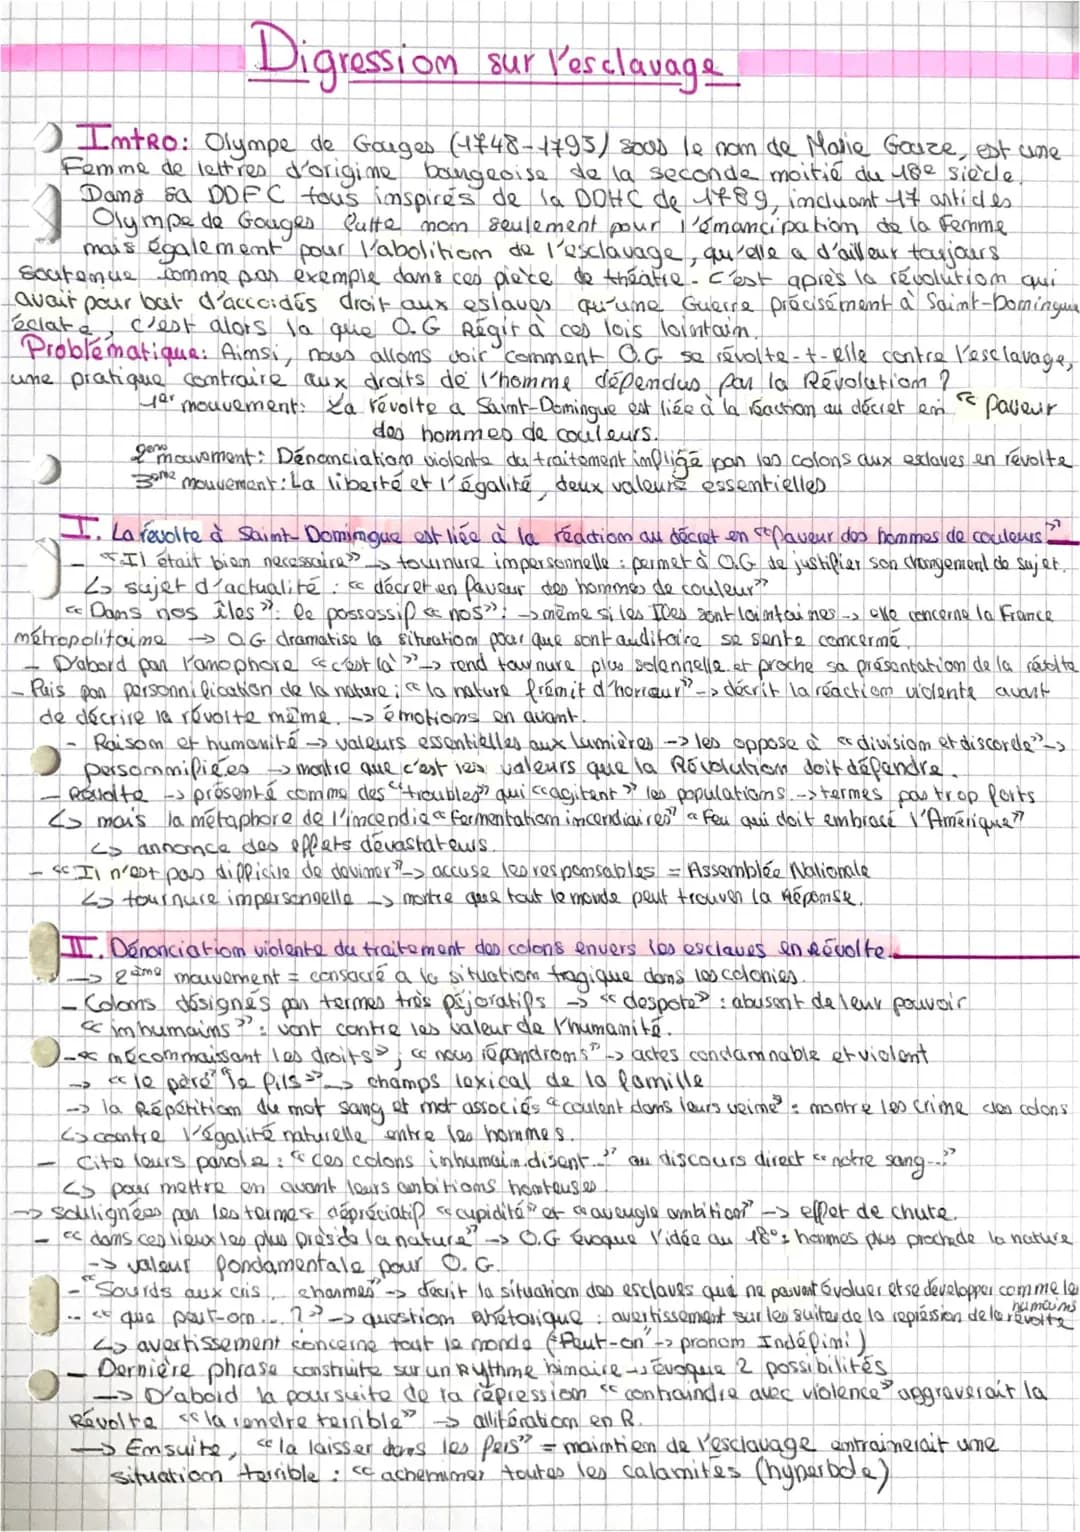 Digression sur l'esclavage
Intro: Olympe de Gouges (1748-1793) sous le nom de Marie Gouze, est une
Femme de lettres d'origine bougeoise de la seconde moitié du 18e siècle.
Dans sa DDFC tous inspirés de la DDHC de 1789, incluant 17 articles
Olympe de Gouges lutte non seulement pour l'émancipation de la Femme
mais également pour l'abolition de l'esclavage, qu'elle a d'ailleur toujours
soutenue comme par exemple dans ces pièce de théatre. C'est après la révolution qui
avait pour but d'accordés droit aux eslaves qu'une Guerre précisément à Saint-Domingue
éclate, c'est alors la que O.G Régit à ces lois lointain.
Problématique: Ainsi, nous allons voir comment O.G se révolte-t-elle contre l'esclavage,
une pratique contraire aux droits de l'homme défendus par la Révolution ?
1er mouvement: La révolte a Saint-Domingue est liée à la réaction au décret en "faveur
des hommes de couleurs.
2eme mouvement: Dénonciation violente du traitement infligé par les colons aux esclaves en révolte
3eme mouvement: La liberté et l'égalité, deux valeurs essentielles
I. La révolte à Saint-Domingue est liée à la réaction au décret en "faveur des hommes de couleurs"
- "Il était bien necessaire" → tournure impersonnelle : permet à O.G de justifier son changement de sujet.
↳ sujet d'actualité : "décret en faveur des hommes de couleur"
"Dans nos îles": le possessif "nos": → même si les Iles sont lointaines → elle concerne la France
métropolitaine → O.G dramatise la situation pour que sont auditoire se sente concerné.
- D'abord par l'anaphore "c'est là" → rend tournure plus solennelle et proche sa présentation de la révolte
- Puis par personnification de la nature; "la nature frémit d'horreur" → décrit la réaction violente avant
de décrire la révolte même. → émotions en avant.
- Raison et humanité → valeurs essentielles aux Lumières → les oppose à "division et discorde" →
personnifiées → montre que c'est les valeurs que la Révolution doit défendre.
- Révolte → présenté comme des "troubles" qui "agitent" les populations. → termes pas trop forts
↳ mais la métaphore de l'incendie "fermentation incendiaires" "Feu qui doit embrasé l'Amérique"
↳ annonce des effets dévastateurs.
- "Il n'est pas difficile de deviner" → accuse les responsables = Assemblée Nationale
↳ tournure impersonnelle → montre que tout le monde peut trouver la Réponse.
II. Dénonciation violente du traitement des colons envers les esclaves en Révolte.
→ 2ème mouvement = consacré à la situation tragique dans les colonies.
- Colons désignés par termes très péjoratifs → "despote" : abusent de leur pouvoir
"inhumains" : vont contre les valeur de l'humanité.
- "méconnaissant les droits" ; "nous répondrons" → actes condamnable et violent
→ "le père" "le fils" → champs lexical de la famille
→ la Répétition du mot sang et mot associés "coulent dans leurs veine" : montre les crime des colons
↳ contre l'égalité naturelle entre les hommes.
- Cite leurs parole : "ces colons inhumain disent..." au discours direct "notre sang..."
↳ pour mettre en avant leurs ambitions honteuses
→ soulignées par les termes dépréciatif "cupidité" et "aveugle ambition" → effet de chute.
- "dans ces lieux les plus près de la nature" → O.G évoque l'idée au 18e: hommes plus proche de la nature
→ valeur fondamentale pour O.G.
- "Sourds aux cris... charmes" → décrit la situation des esclaves qui ne peuvent évoluer et se développer comme les
humains
- "que peut-on... ?" → question Rhétorique : avertissement sur les suites de la repression de la révolte
↳ avertissement concerne tout le monde ("Peut-on" → pronom Indéfini)
- Dernière phrase construite sur un Rythme binaire → Évoque 2 possibilités
→ D'abord la poursuite de la répression "contraindre avec violence" aggraverait la
Révolte "la rendre terrible" → allitération en R.
→ Ensuite, "la laisser dans les fers" = maintien de l'esclavage entrainerait une
situation terrible : "acheminer toutes les calamités (hyperbole)